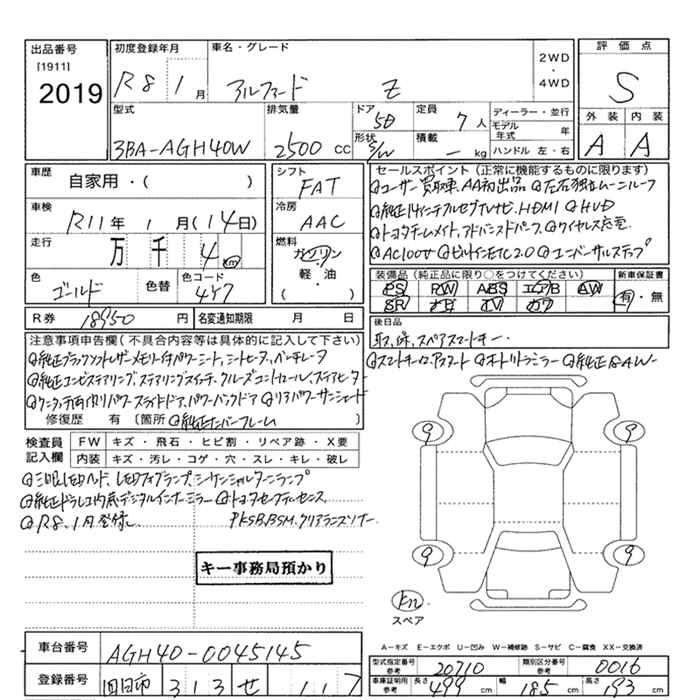 出品番号
[1911]
2019
初度登録年月
R8 1月
車名・グレード
アルファード Z
2WD
・
4WD
評価点
S
外装 内装
A A
型式
3BA-AGH40W
排気量
2500 cc
ドア 5D
形状 S/W
定員 7人
積載 ー kg
ディーラー・並行
モデル年式 年
ハンドル 左・右
車歴
自家用・( )
車検
R11年 1月(14日)
走行
万 千 4 km
色
ゴールド
色替
色コード
4Y7
シフト
FAT
冷房
AAC
燃料
ガソリン
軽・油
・( )
セールスポイント(正常に機能するものに限ります)
◎ユーザー買取車、AA初出品 ◎左右独立ムーンルーフ
◎純正14インチフルセグTVナビ、HDMI ◎HUD
◎トヨタチームメイト、アドバンスドパーク、◎ワイヤレス充電
◎AC100V ◎ビルトインETC2.0 ◎ユニバーサルステップ
装備品(純正品に限り○をつけてください)
PS PW ABS エアB AW
SR ナビ TV カワ
新車保証書
有・無
R券 18950円
名変通知期限 月 日
後日品
取、保、スペアスマートキー.
注意事項申告欄(不具合内容等は具体的に記入して下さい)
◎純正ブラックソフトレザーメモリー付パワーシート、シートヒータ、ベンチレータ
◎純正コンビステアリング、ステアリングスイッチ、クルーズコントロール、ステアヒーター
◎ワンタッチ両側パワースライドドア、パワーバックドア ◎リアパワーサンシェード
修復歴 有 〔箇所 ◎純正ナンバーフレーム )
◎スマートキー(2)、プッシュスタート ◎オートトリトラミラー ◎純正18AW-
検査員
記入欄
FW キズ・飛石・ヒビ割・リペア跡・X要
内装 キズ・汚レ・コゲ・穴・スレ・キレ・破レ
◎三眼LEDヘッド、LEDフォグランプ、シーケンシャルターンランプ
◎純正ドラレコ内蔵デジタルインナーミラー ◎トヨタセーフティセンス
◎R8、1月登録、 PKSB、BSM、クリアランスソナー
キー事務局預かり
9 9
9 9
トム
スペア
A－キズ E－エクボ U－凹み W－補修跡 S－サビ C－腐食 XX－交換済
車台番号
AGH40-0045145
登録番号
四日市 313 せ 117
型式指定番号
参考
20710
類別区分番号
参考
0016
車庫証明用
参考
長さ 499 cm
幅 185 cm
高さ 193 cm